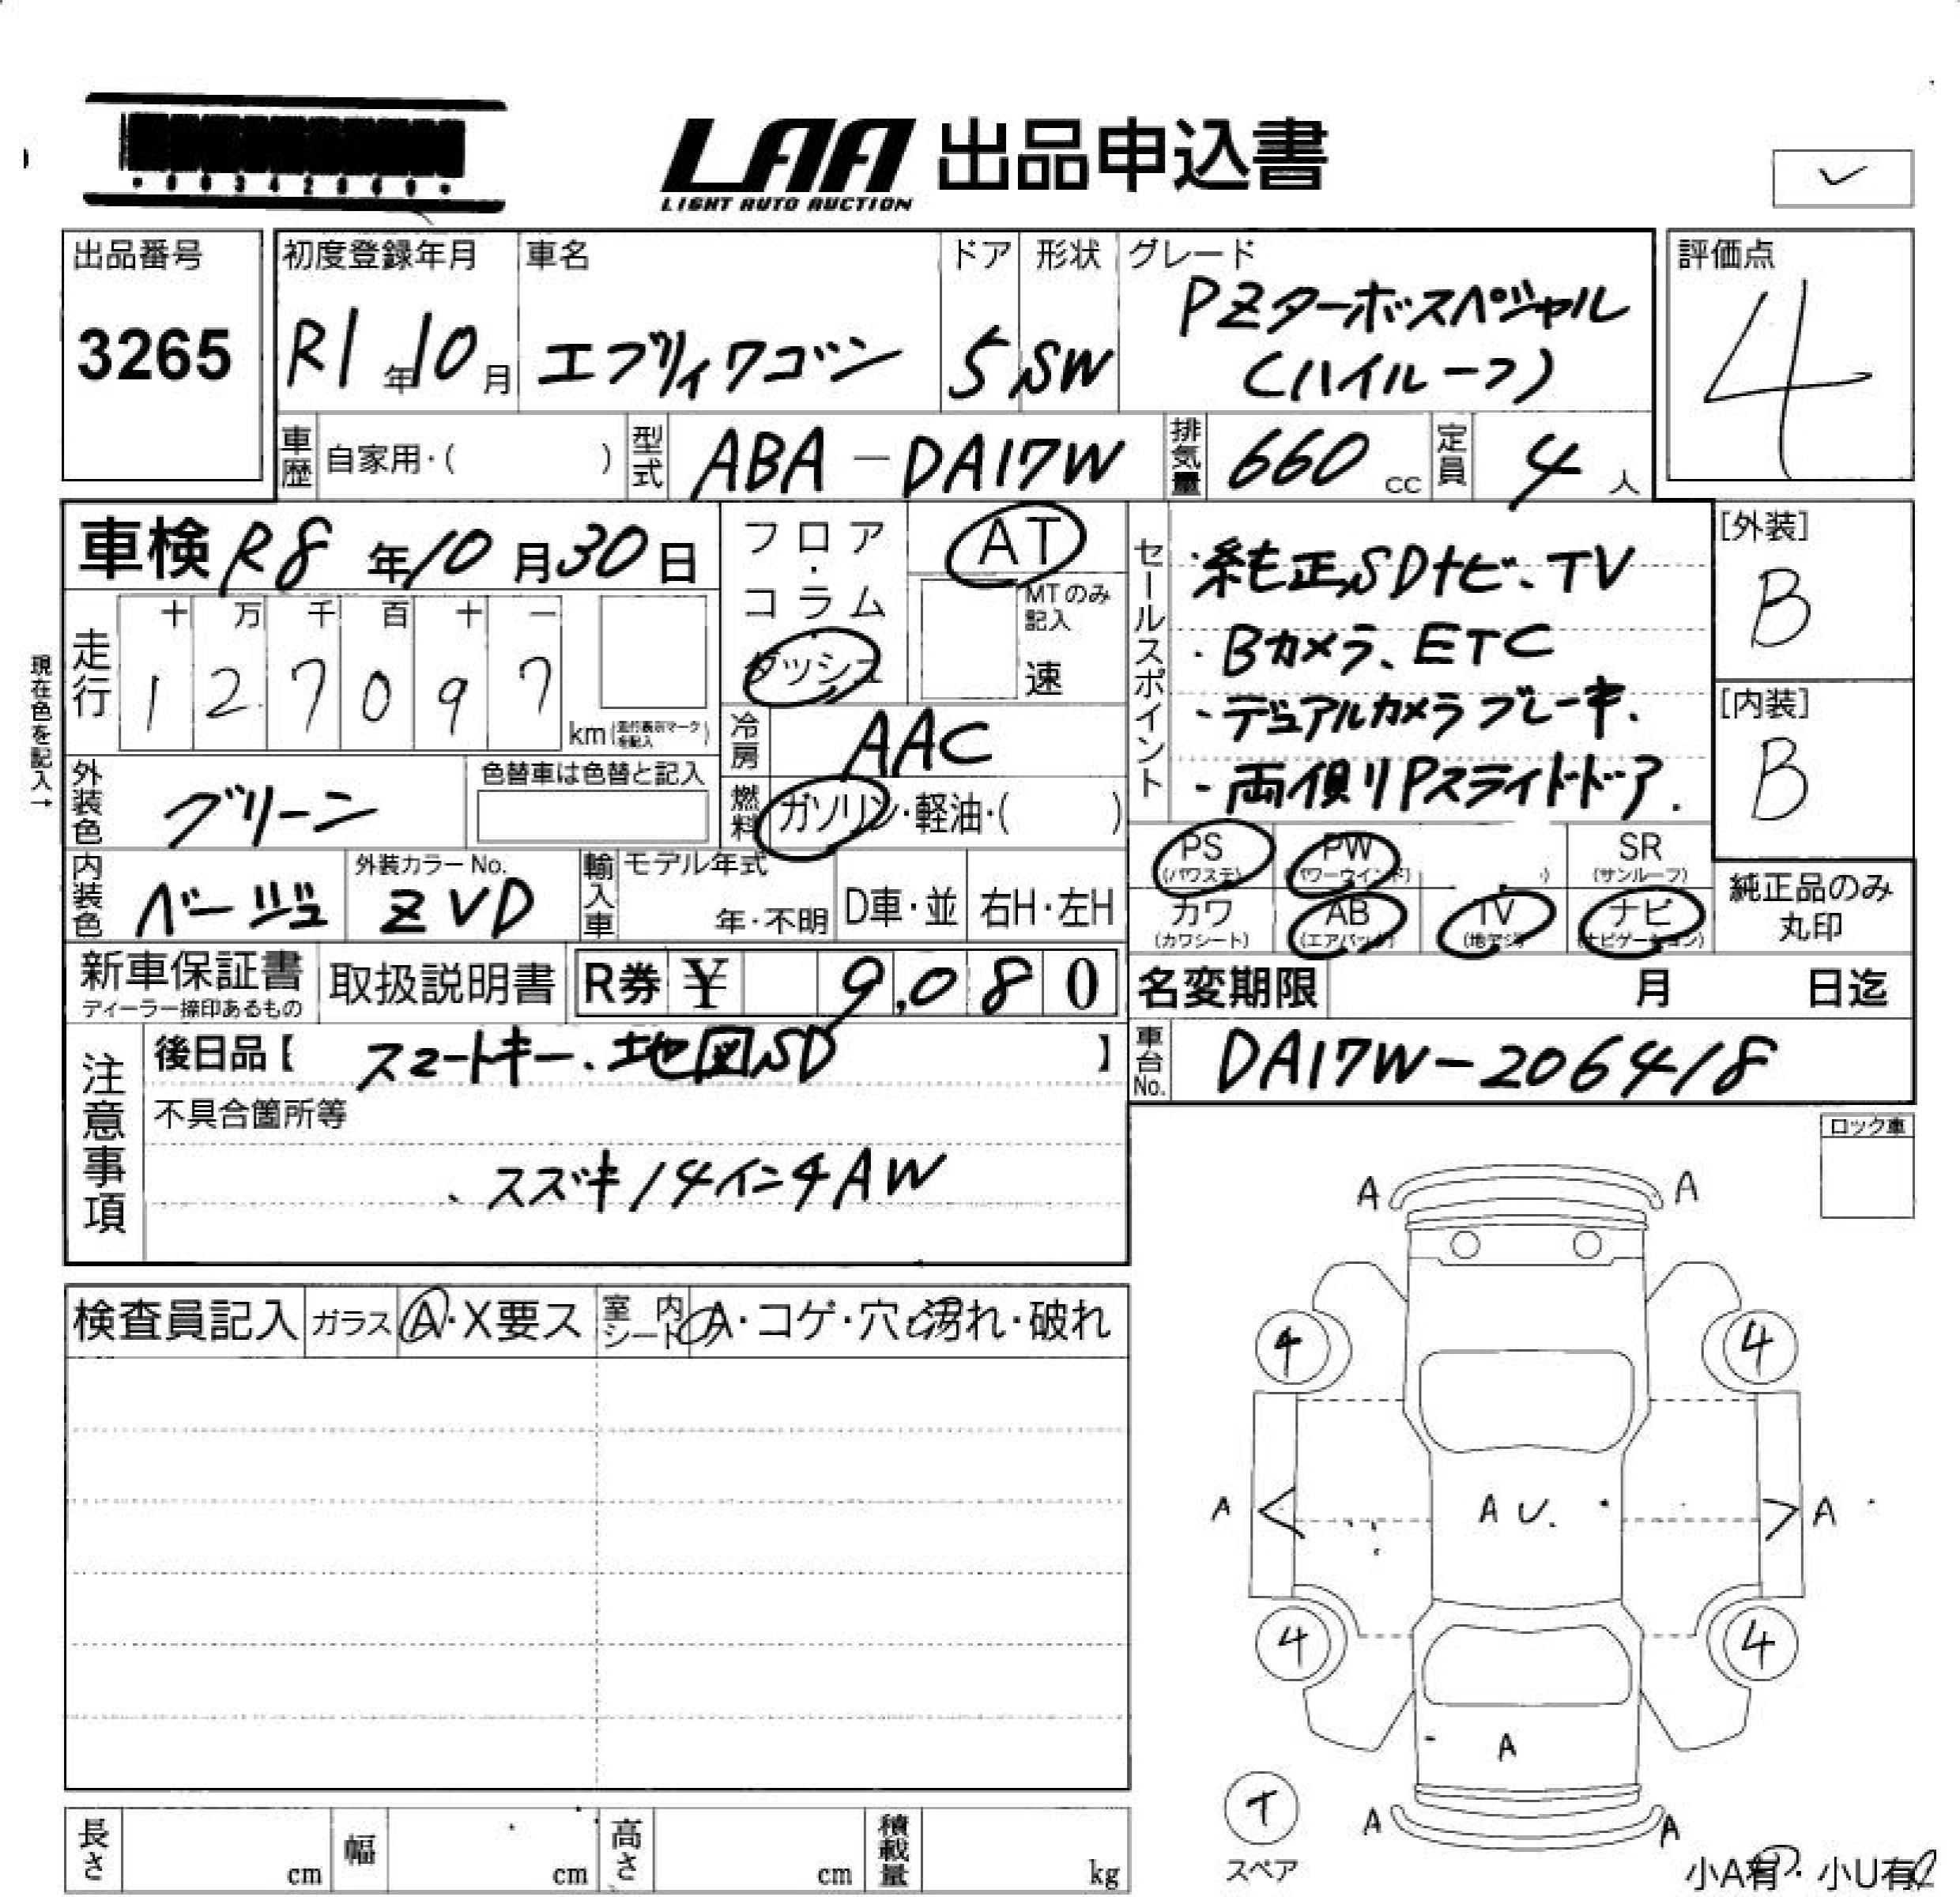 LAA 出品申込書
LIGHT AUTO AUCTION
出品番号
3265
初度登録年月
R1年10月
車名
エブリィワゴン
ドア
5
形状
SW
グレード
PZターボスペシャル
(ハイルーフ)
評価点
4
車歴 自家用・( )
型式 ABA-DA17W
排気量 660 cc
定員 4 人
車検 R8年10月30日
走行
十 万 千 百 十 一
1 2 7 0 9 7
km
現在色を記入→
フロア・コラム
ダッシュ
AT
MTのみ記入
速
冷房 AAC
燃料 ガソリン・軽油・( )
セールスポイント
・純正SDナビ、TV
・Bカメラ、ETC
・デュアルカメラブレーキ.
・両側Pスライドドア.
[外装]
B
[内装]
B
外装色 グリーン
色替車は色替と記入
内装色 ベージュ
外装カラーNo.
ZVD
輸入車
モデル年式
年・不明
D車・並
右H・左H
PS
(パワステ)
PW
(パワーウインド)
SR
(サンルーフ)
カワ
(カワシート)
AB
(エアバック)
TV
(地デジ)
ナビ
(ナビゲーション)
純正品のみ
丸印
新車保証書
ディーラー捺印あるもの
取扱説明書
R券 ¥ 9,080
名変期限 月 日迄
注意事項
後日品【 スマートキー、地図SD 】
不具合箇所等
、スズキ14インチAW
車台No. DA17W-206418
ロック車
検査員記入
ガラス A・X要ス
室内シート A・コゲ・穴・汚れ・破れ
A A
4 4
A A U. A
4 4
A
A A
T
スペア
小A有・小U有
長さ cm
幅 cm
高さ cm
積載量 kg